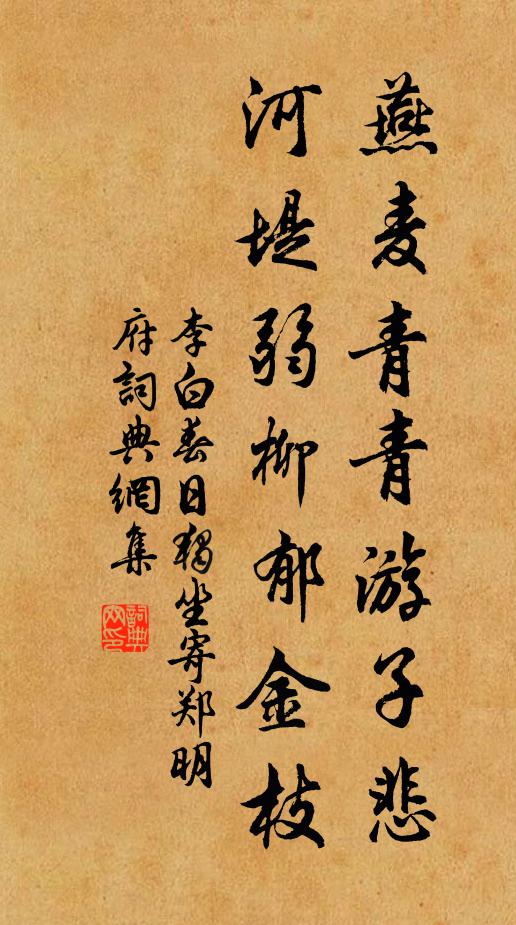 燕麦青青游子悲
河堤弱柳郁金枝
李白春日獨坐寄郑明
府詞典網集
詞典
网印